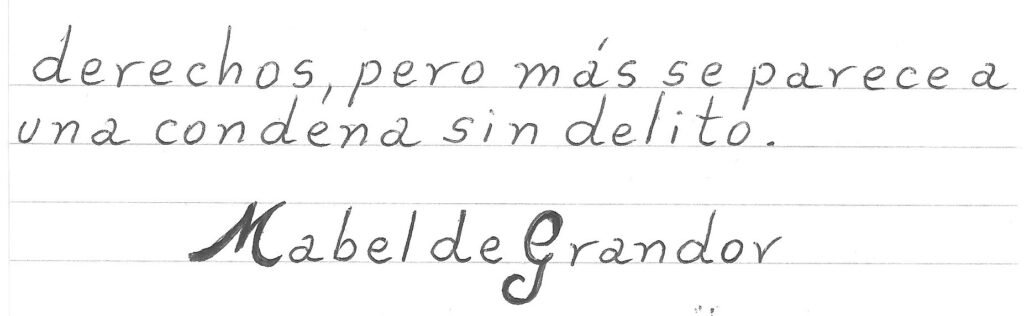 derechos, pero más se parece a
una condena sin delito.
Mabel de Grandor